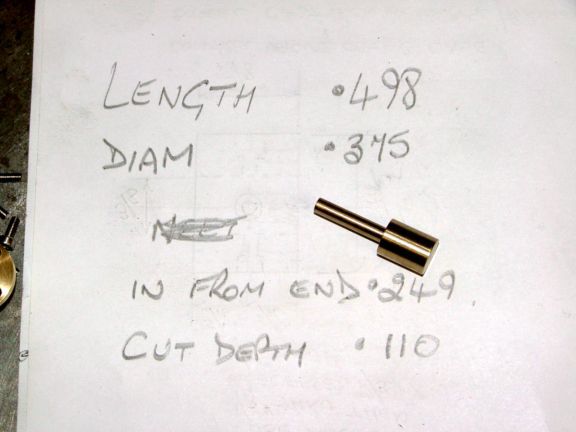 LENGTH .498
DIAM .375
IN FROM END .249
CUT DEPTH .110